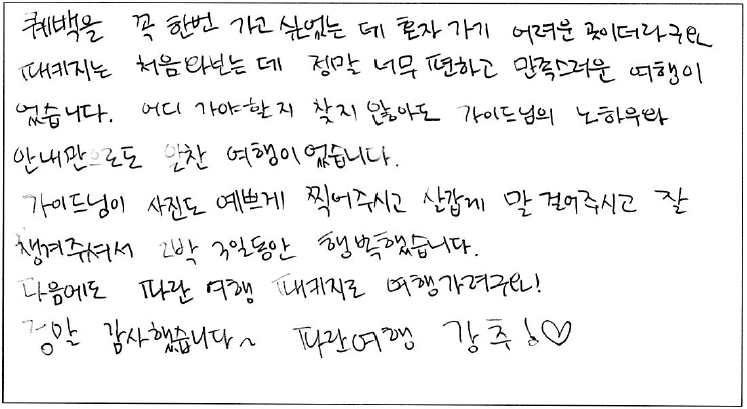 퀘백을 꼭 한번 가고 싶었는데 혼자 가기 어려운 곳이더라구요
패키지는 처음타보는데 정말 너무 편하고 만족스러운 여행이
었습니다. 어디 가야할지 찾지 않아도 가이드님의 노하우와
안내만으로도 알찬 여행이었습니다.
가이드님이 사진도 예쁘게 찍어주시고 살갑게 말 걸어주시고 잘
챙겨주셔서 2박 3일동안 행복했습니다.
다음에도 파란 여행 패키지로 여행가려구요!
정말 감사했습니다~ 파란여행 강추!♡